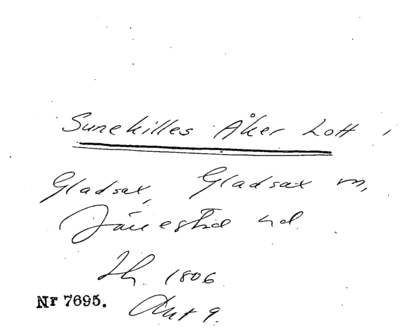 Sunekilles Åker Lott,
Gladsax, Gladsax sn,
Järrestad hd.
Lh. 1806
Nr 7695. Akt 9.